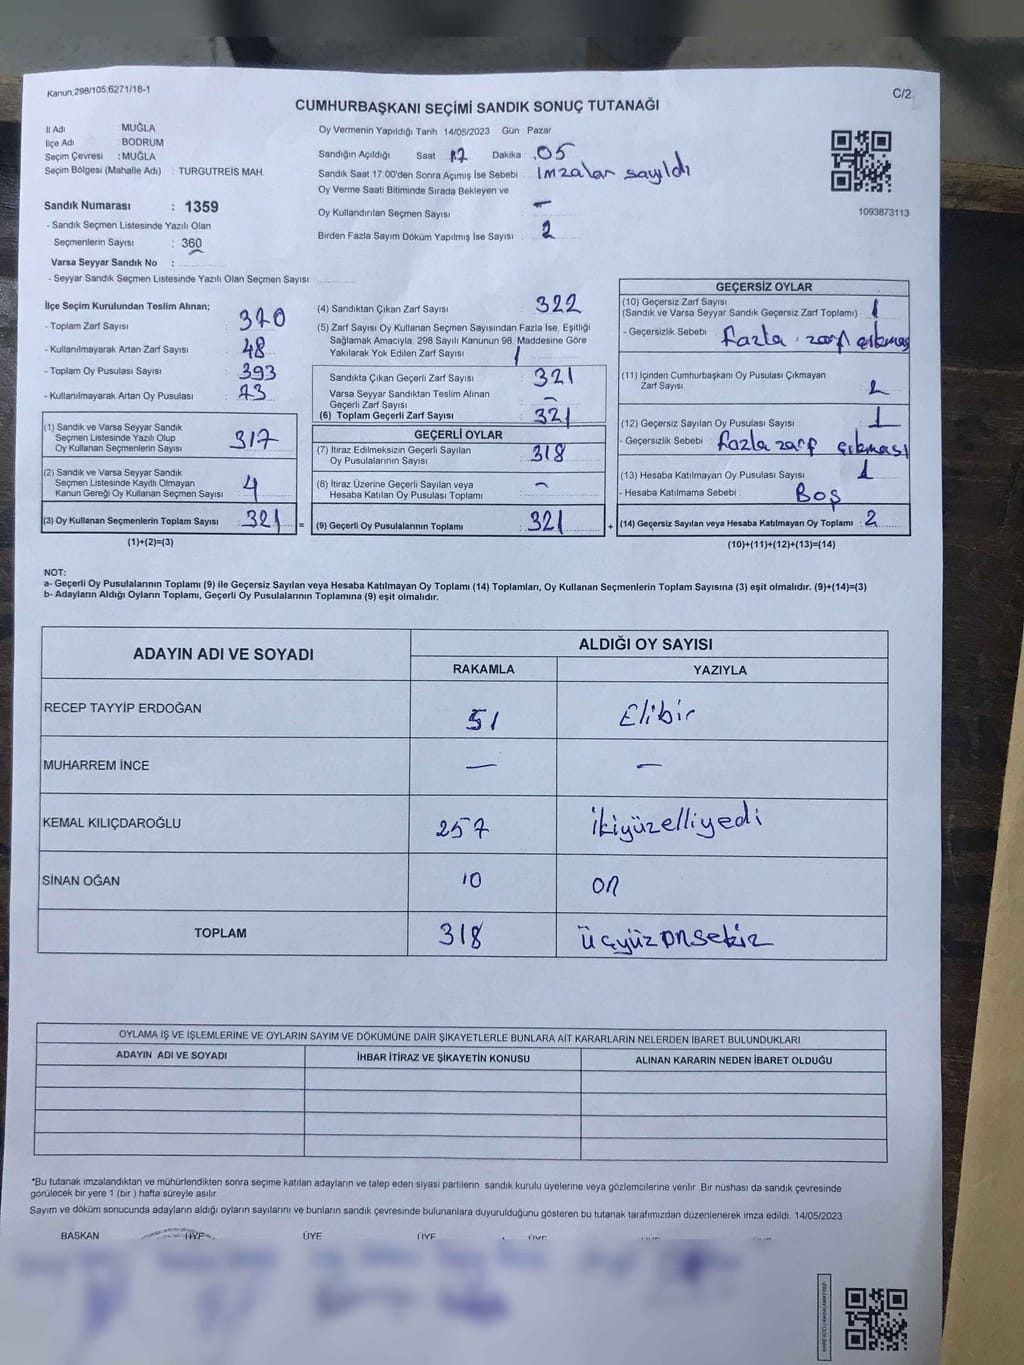 Kanun.298/105;6271/18-1
C/2
CUMHURBAŞKANI SEÇİMİ SANDIK SONUÇ TUTANAĞI
İl Adı MUĞLA
İlçe Adı BODRUM
Seçim Çevresi : MUĞLA
Seçim Bölgesi (Mahalle Adı) : TURGUTREİS MAH.
Sandık Numarası : 1359
- Sandık Seçmen Listesinde Yazılı Olan
Seçmenlerin Sayısı : 360
Varsa Seyyar Sandık No :
- Seyyar Sandık Seçmen Listesinde Yazılı Olan Seçmen Sayısı:
Oy Vermenin Yapıldığı Tarih 14/05/2023 Gün Pazar
Sandığın Açıldığı Saat 17 Dakika 05
Sandık Saat 17.00'den Sonra Açımış İse Sebebi : imzalar sayıldı
Oy Verme Saati Bitiminde Sırada Bekleyen ve
Oy Kullandırılan Seçmen Sayısı : —
Birden Fazla Sayım Döküm Yapılmış İse Sayısı : 2
1093873113
İlçe Seçim Kurulundan Teslim Alınan;
- Toplam Zarf Sayısı : 370
- Kullanılmayarak Artan Zarf Sayısı : 48
- Toplam Oy Pusulası Sayısı : 393
- Kullanılmayarak Artan Oy Pusulası : 73
(1) Sandık ve Varsa Seyyar Sandık
Seçmen Listesinde Yazılı Olup
Oy Kullanan Seçmenlerin Sayısı : 317
(2) Sandık ve Varsa Seyyar Sandık
Seçmen Listesinde Kayıtlı Olmayan
Kanun Gereği Oy Kullanan Seçmen Sayısı : 4
(3) Oy Kullanan Seçmenlerin Toplam Sayısı : 321
(1)+(2)=(3)
(4) Sandıktan Çıkan Zarf Sayısı : 322
(5) Zarf Sayısı Oy Kullanan Seçmen Sayısından Fazla İse, Eşitliği
Sağlamak Amacıyla, 298 Sayılı Kanunun 98. Maddesine Göre
Yakılarak Yok Edilen Zarf Sayısı : 1
Sandıkta Çıkan Geçerli Zarf Sayısı : 321
Varsa Seyyar Sandıktan Teslim Alınan
Geçerli Zarf Sayısı : —
(6) Toplam Geçerli Zarf Sayısı : 321
GEÇERLİ OYLAR
(7) İtiraz Edilmeksizin Geçerli Sayılan
Oy Pusulalarının Sayısı : 318
(8) İtiraz Üzerine Geçerli Sayılan veya
Hesaba Katılan Oy Pusulası Toplamı : —
= (9) Geçerli Oy Pusulalarının Toplamı : 321 +
GEÇERSİZ OYLAR
(10) Geçersiz Zarf Sayısı
(Sandık ve Varsa Seyyar Sandık Geçersiz Zarf Toplamı) : 1
- Geçersizlik Sebebi : fazla zarf çıkması
(11) İçinden Cumhurbaşkanı Oy Pusulası Çıkmayan
Zarf Sayısı :
(12) Geçersiz Sayılan Oy Pusulası Sayısı : 1
- Geçersizlik Sebebi : fazla zarf çıkması
(13) Hesaba Katılmayan Oy Pusulası Sayısı : 1
- Hesaba Katılmama Sebebi : Boş
(14) Geçersiz Sayılan veya Hesaba Katılmayan Oy Toplamı : 2
(10)+(11)+(12)+(13)=(14)
NOT:
a- Geçerli Oy Pusulalarının Toplamı (9) ile Geçersiz Sayılan veya Hesaba Katılmayan Oy Toplamı (14) Toplamları, Oy Kullanan Seçmenlerin Toplam Sayısına (3) eşit olmalıdır. (9)+(14)=(3)
b- Adayların Aldığı Oyların Toplamı, Geçerli Oy Pusulalarının Toplamına (9) eşit olmalıdır.
ADAYIN ADI VE SOYADI ALDIĞI OY SAYISI
RAKAMLA YAZIYLA
RECEP TAYYİP ERDOĞAN 51 Elibir
MUHARREM İNCE — —
KEMAL KILIÇDAROĞLU 257 ikiyüzelliyedi
SİNAN OĞAN 10 on
TOPLAM 318 üçyüzonsekiz
OYLAMA İŞ VE İŞLEMLERİNE VE OYLARIN SAYIM VE DÖKÜMÜNE DAİR ŞİKAYETLERLE BUNLARA AİT KARARLARIN NELERDEN İBARET BULUNDUKLARI
ADAYIN ADI VE SOYADI İHBAR İTİRAZ VE ŞİKAYETİN KONUSU ALINAN KARARIN NEDEN İBARET OLDUĞU
*Bu tutanak imzalandıktan ve mühürlendikten sonra seçime katılan adayların ve talep eden siyasi partilerin sandık kurulu üyelerine veya gözlemcilerine verilir. Bir nüshası da sandık çevresinde
görülecek bir yere 1 (bir ) hafta süreyle asılır.
Sayım ve döküm sonucunda adayların aldığı oyların sayılarını ve bunların sandık çevresinde bulunanlara duyurulduğunu gösteren bu tutanak tarafımızdan düzenlenerek imza edildi. 14/05/2023
BAŞKAN ÜYE ÜYE ÜYE ÜYE